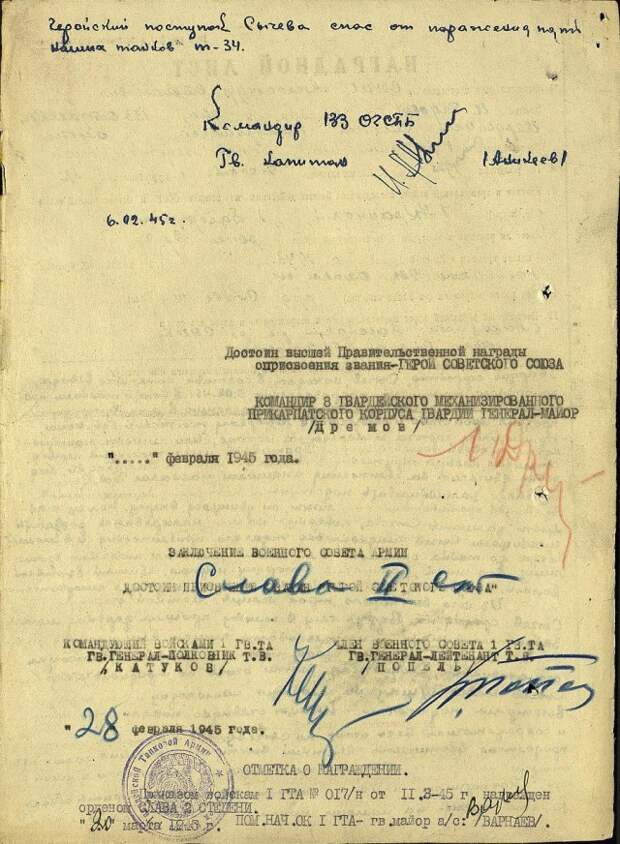 Геройский поступок Сычева спас от поражения пять
наших танков Т-34.
Командир 133 ОГСТБ
Гв. капитан
/Аникеев/
6.02.45г.
Достоин высшей Правительственной награды
оприсвоения звания-ГЕРОЙ СОВЕТСКОГО СОЮЗА
КОМАНДИР 8 ГВАРДЕЙСКОГО МЕХАНИЗИРОВАННОГО
ПРИКАРПАТСКОГО КОРПУСА ГВАРДИИ ГЕНЕРАЛ-МАЙОР
/Дремов/
"....." февраля 1945 года.
ЗАКЛЮЧЕНИЕ ВОЕННОГО СОВЕТА АРМИИ
Слава II ст
ДОСТОИН ПРИСВОЕНИЯ ЗВАНИЯ "ГЕРОЙ СОВЕТСКОГО СОЮЗА"
КОМАНДУЮЩИЙ ВОЙСКАМИ 1 ГВ.ТА ЧЛЕН ВОЕННОГО СОВЕТА 1 ГВ.ТА
ГВ.ГЕНЕРАЛ-ПОЛКОВНИК Т.В. ГВ.ГЕНЕРАЛ-ЛЕЙТЕНАНТ Т.В.
/КАТУКОВ/ /ПОПЕЛЬ/
"28 февраля 1945 года.
ОТМЕТКА О НАГРАЖДЕНИИ.
Приказом войскам I ГТА № 017/н от II.3-45г. награжден
орденом СЛАВА 2 СТЕПЕНИ.
"20" марта 1945 г. ПОМ.НАЧ.ОК I ГТА- гв.майор а/с: /ВАРНАЕВ/.
Танковой Армии